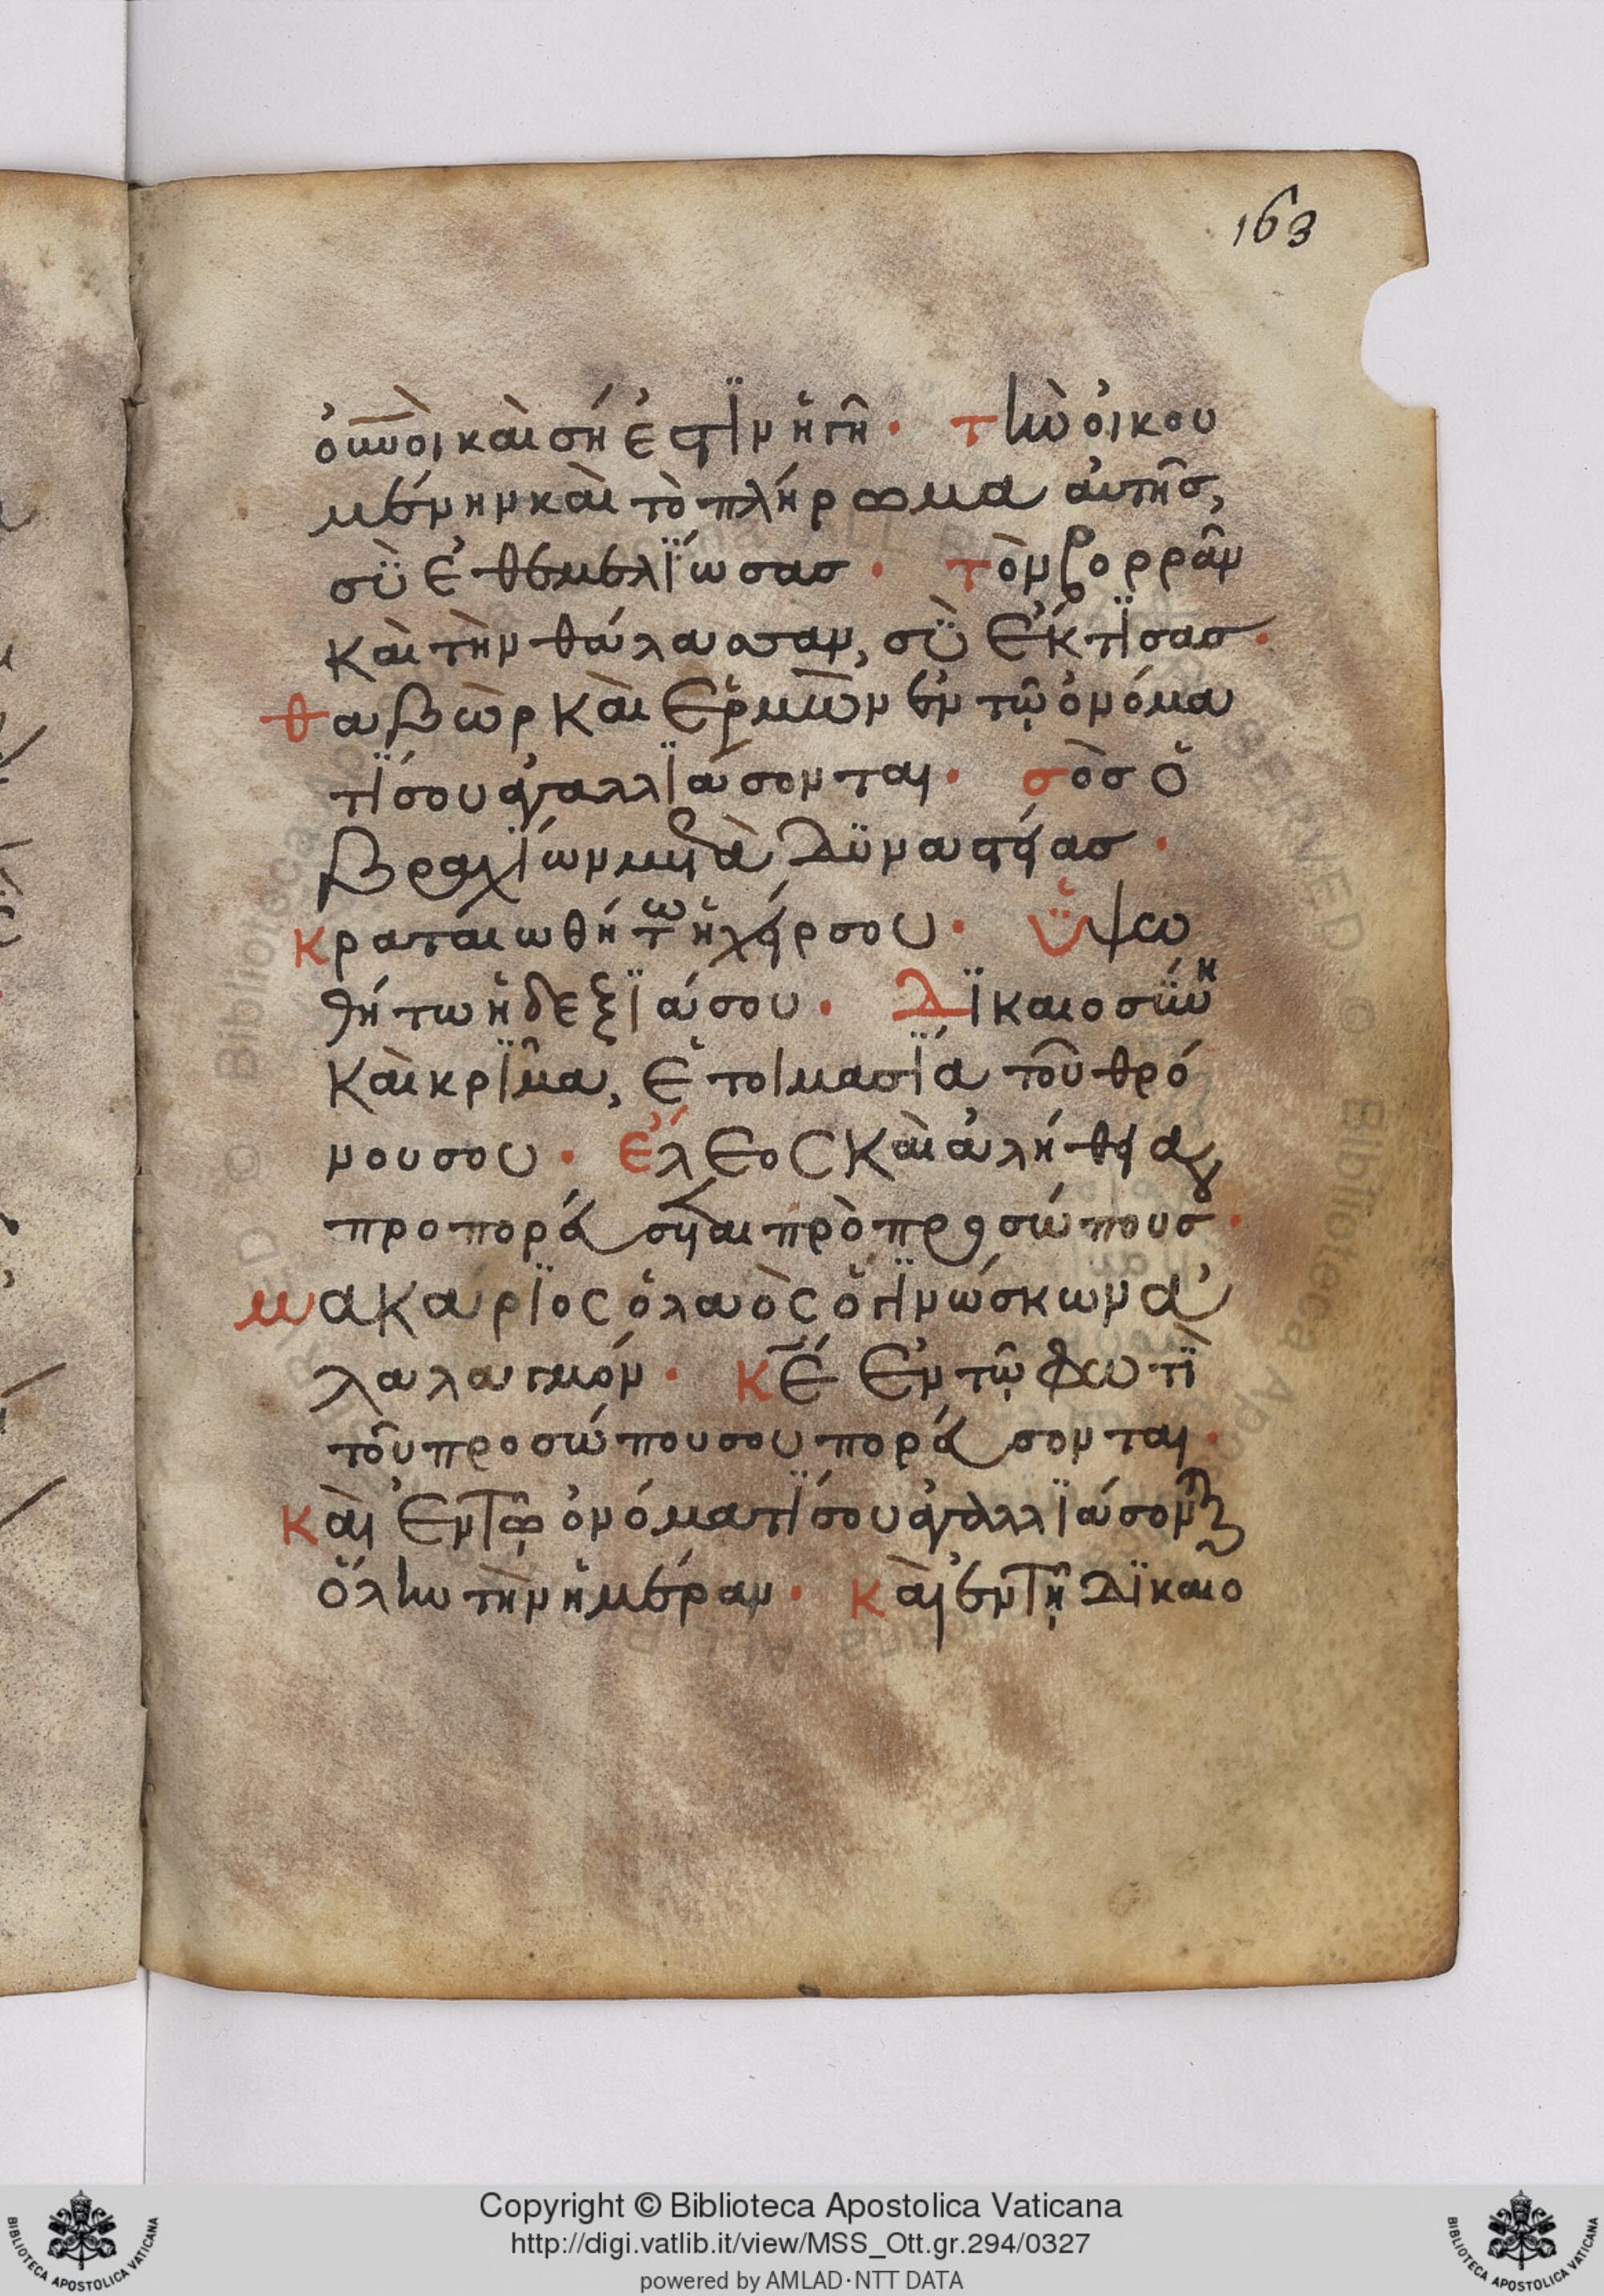 163
οὐνοὶ καὶ σή ἐστϊν ἡ γῆ· τὴν οἰκου
μένην καὶ τὸ πλήρωμα αὐτῆς,
σὺ ἐθεμελΐωσας· τὸν βορρᾶν
καὶ τὴν θάλασσαν, σὺ ἔκτϊσας·
θαβὼρ καὶ ἑρμὼν ἐν τῷ ὀνόμα
τΐ σου ἀγαλλϊάσονται· σὸς ὁ
βραχΐων μετὰ δϋναστείας·
κραταιωθήτω ἡ χείρ σου· ὑψω
θήτω ἡ δεξϊά σου· δϊκαιοσΰνη
καὶ κρΐμα, ἑτοιμασΐα τοῦ θρό
νου σου· ἔλεος καὶ ἀλήθεια
προπορεύσεται πρὸ προσώπου σ·
μακάρϊος ὁ λαὸς ὁ γϊνώσκων ἀ
λαλαγμόν· κε ἐν τῷ φωτϊ
τοῦ προσώπου σου πορεύσονται·
καὶ ἐν τῷ ὀνόματΐ σου ἀγαλλϊάσονται
ὅλην τὴν ἡμέραν· καὶ ἐν τῇ δϊκαιο
Copyright © Biblioteca Apostolica Vaticana
http://digi.vatlib.it/view/MSS_Ott.gr.294/0327
powered by AMLAD·NTT DATA